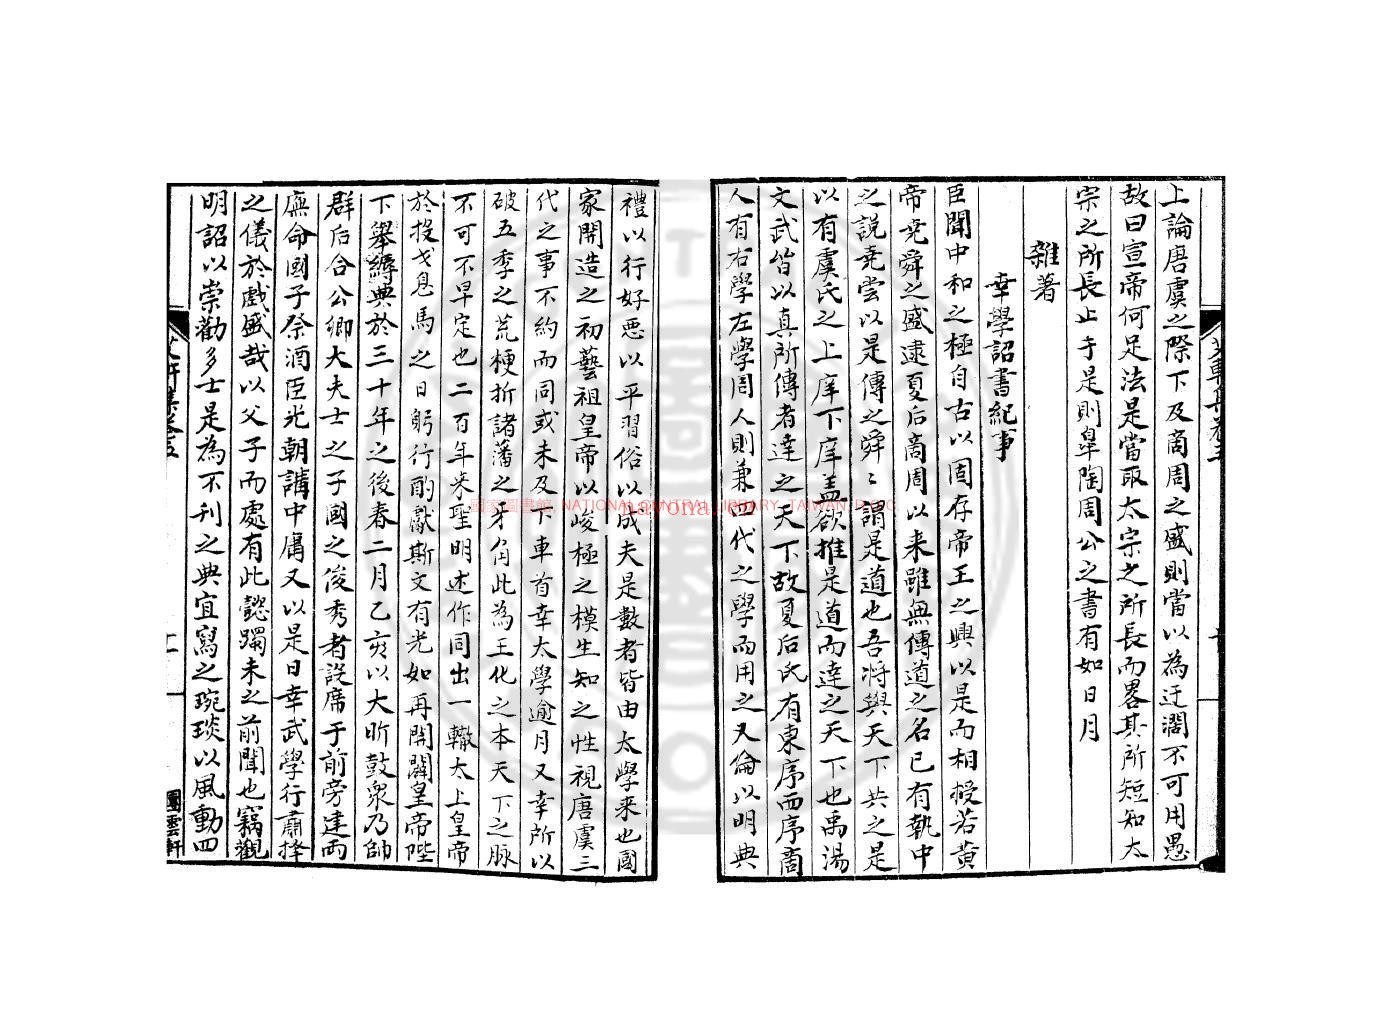 上論唐虞之際下及商周之盛則當以為迂濶不可用愚
故曰宣帝何足法是當取太宗之所長而畧其所短知太
宗之所長止于是則臯陶周公之書有如日月
雜著
幸學詔書紀事
臣聞中和之極自古以固存帝王之興以是而相授若黃
帝堯舜之盛逮夏后商周以来雖無傳道之名已有執中
之說堯嘗以是傳之舜舜謂是道也吾將與天下共之是
以有虞氏之上庠下庠盖欲推是道而達之天下也禹湯
文武皆以真所傳者達之天下故夏后氏有東序西序商
人有右學左學周人則兼四代之學而用之又倫以明典
禮以行好惡以平習俗以成夫是數者皆由太學来也國
家開造之初藝祖皇帝以峻極之模生知之性視唐虞三
代之事不約而同或未及下車首幸太學逾月又幸所以
破五季之荒梗折諸藩之牙角此為王化之本天下之脉
不可不早定也二百年来聖明述作同出一轍太上皇帝
於投戈息馬之日躬行酌獻斯文有光如再開闢皇帝陛
下舉縟典於三十年之後春二月乙亥以大昕鼓衆乃帥
群后合公卿大夫士之子國之俊秀者設席于前旁建兩
廡命國子祭酒臣光朝講中庸又以是日幸武學行肅拜
之儀於戲盛哉以父子而處有此懿躅未之前聞也竊觀
明詔以崇勸多士是為不刊之典宜寫之琬琰以風動四
軒集卷五
圖雲軒
國家圖書館 NATIONAL CENTRAL LIBRARY, TAIWAN, R.O.C